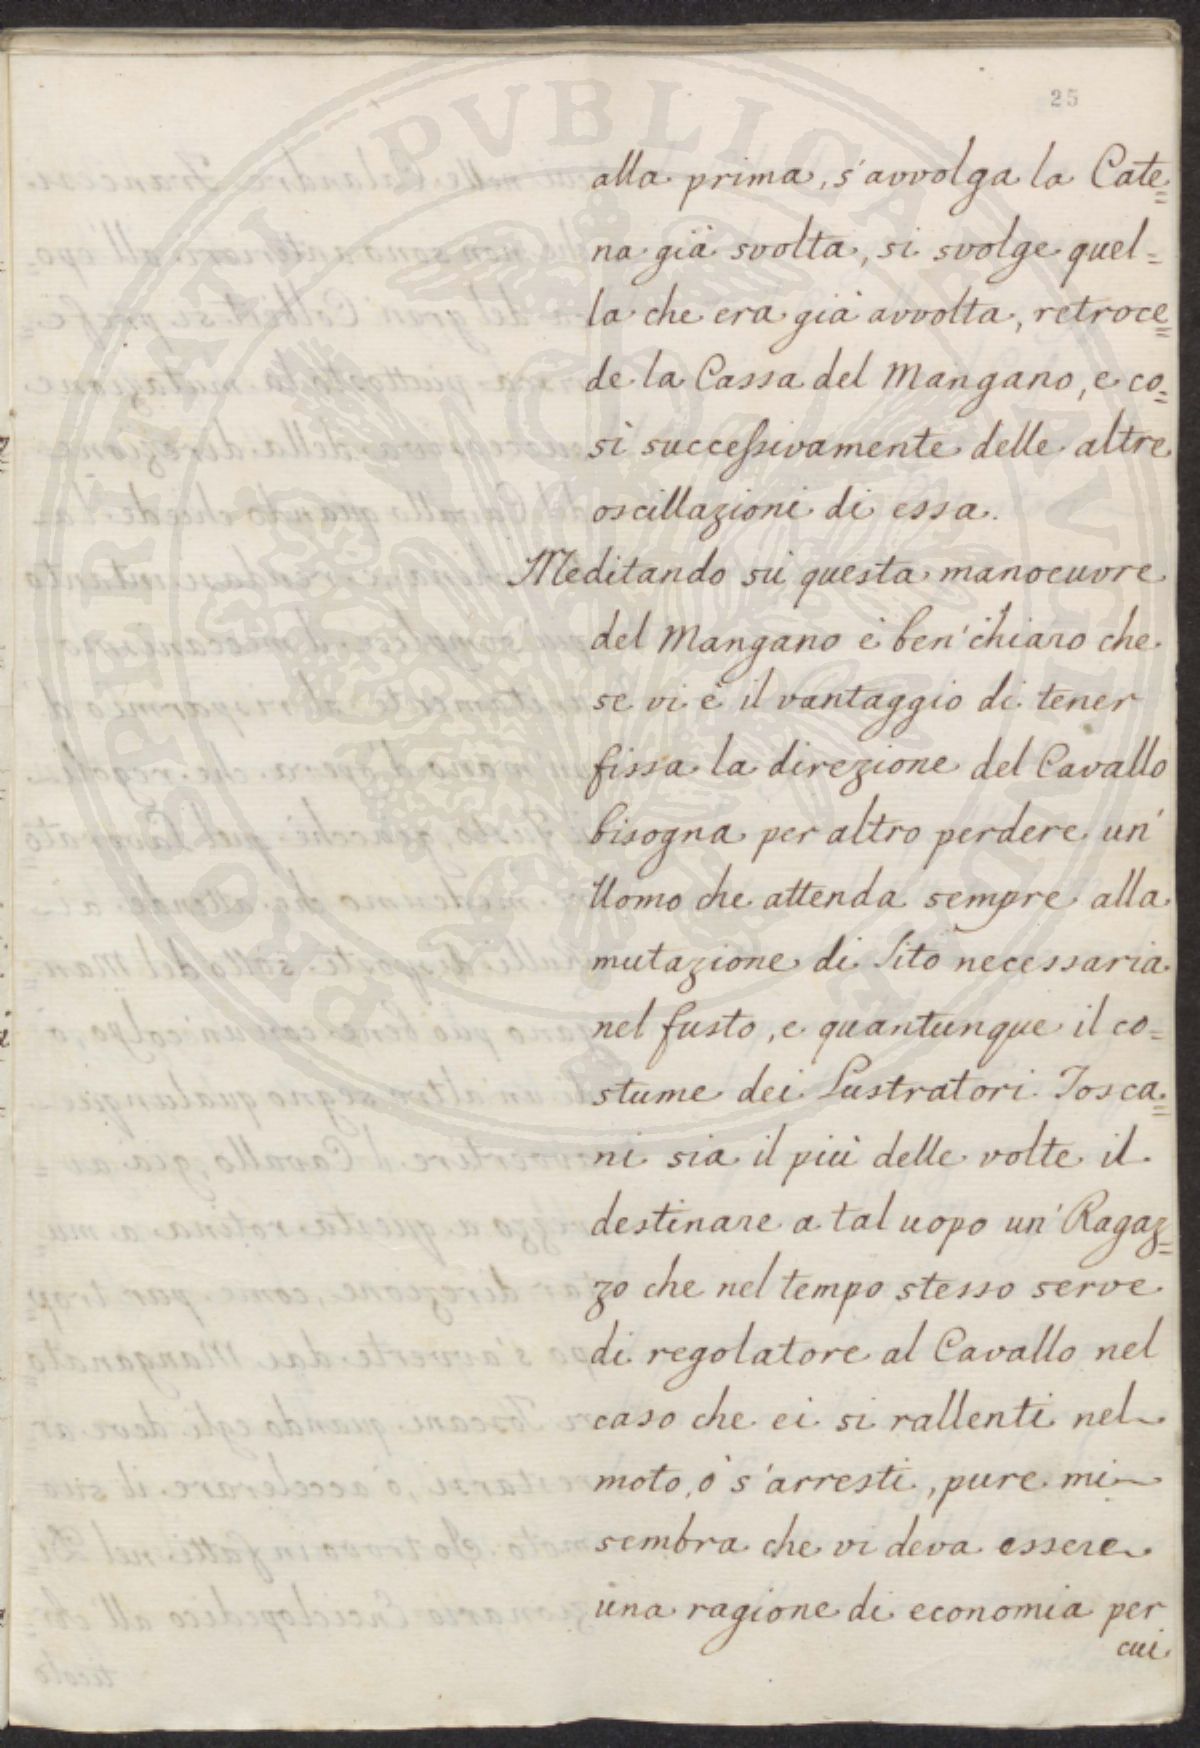 25
alla prima, s'avvolga la Cate=
na già svolta, si svolge quel=
la che era già avvolta, retroce=
de la Cassa del Mangano, e co=
sì successivamente delle altre
oscillazioni di essa.
Meditando sù questa manoeuvre
del Mangano è ben'chiaro che
se vi è il vantaggio di tener
fissa la direzione del Cavallo
bisogna per altro perdere un'
Uomo che attenda sempre alla
mutazione di Sito necessaria
nel fusto, e quantunque il co=
stume dei Lustratori Tosca=
ni sia il più delle volte il
destinare a tal uopo un' Ragaz=
zo che nel tempo stesso serve
di regolatore al Cavallo nel
caso che ei si rallenti nel
moto, ò s'arresti, pure mi
sembra che vi deva essere
una ragione di economia per
cui